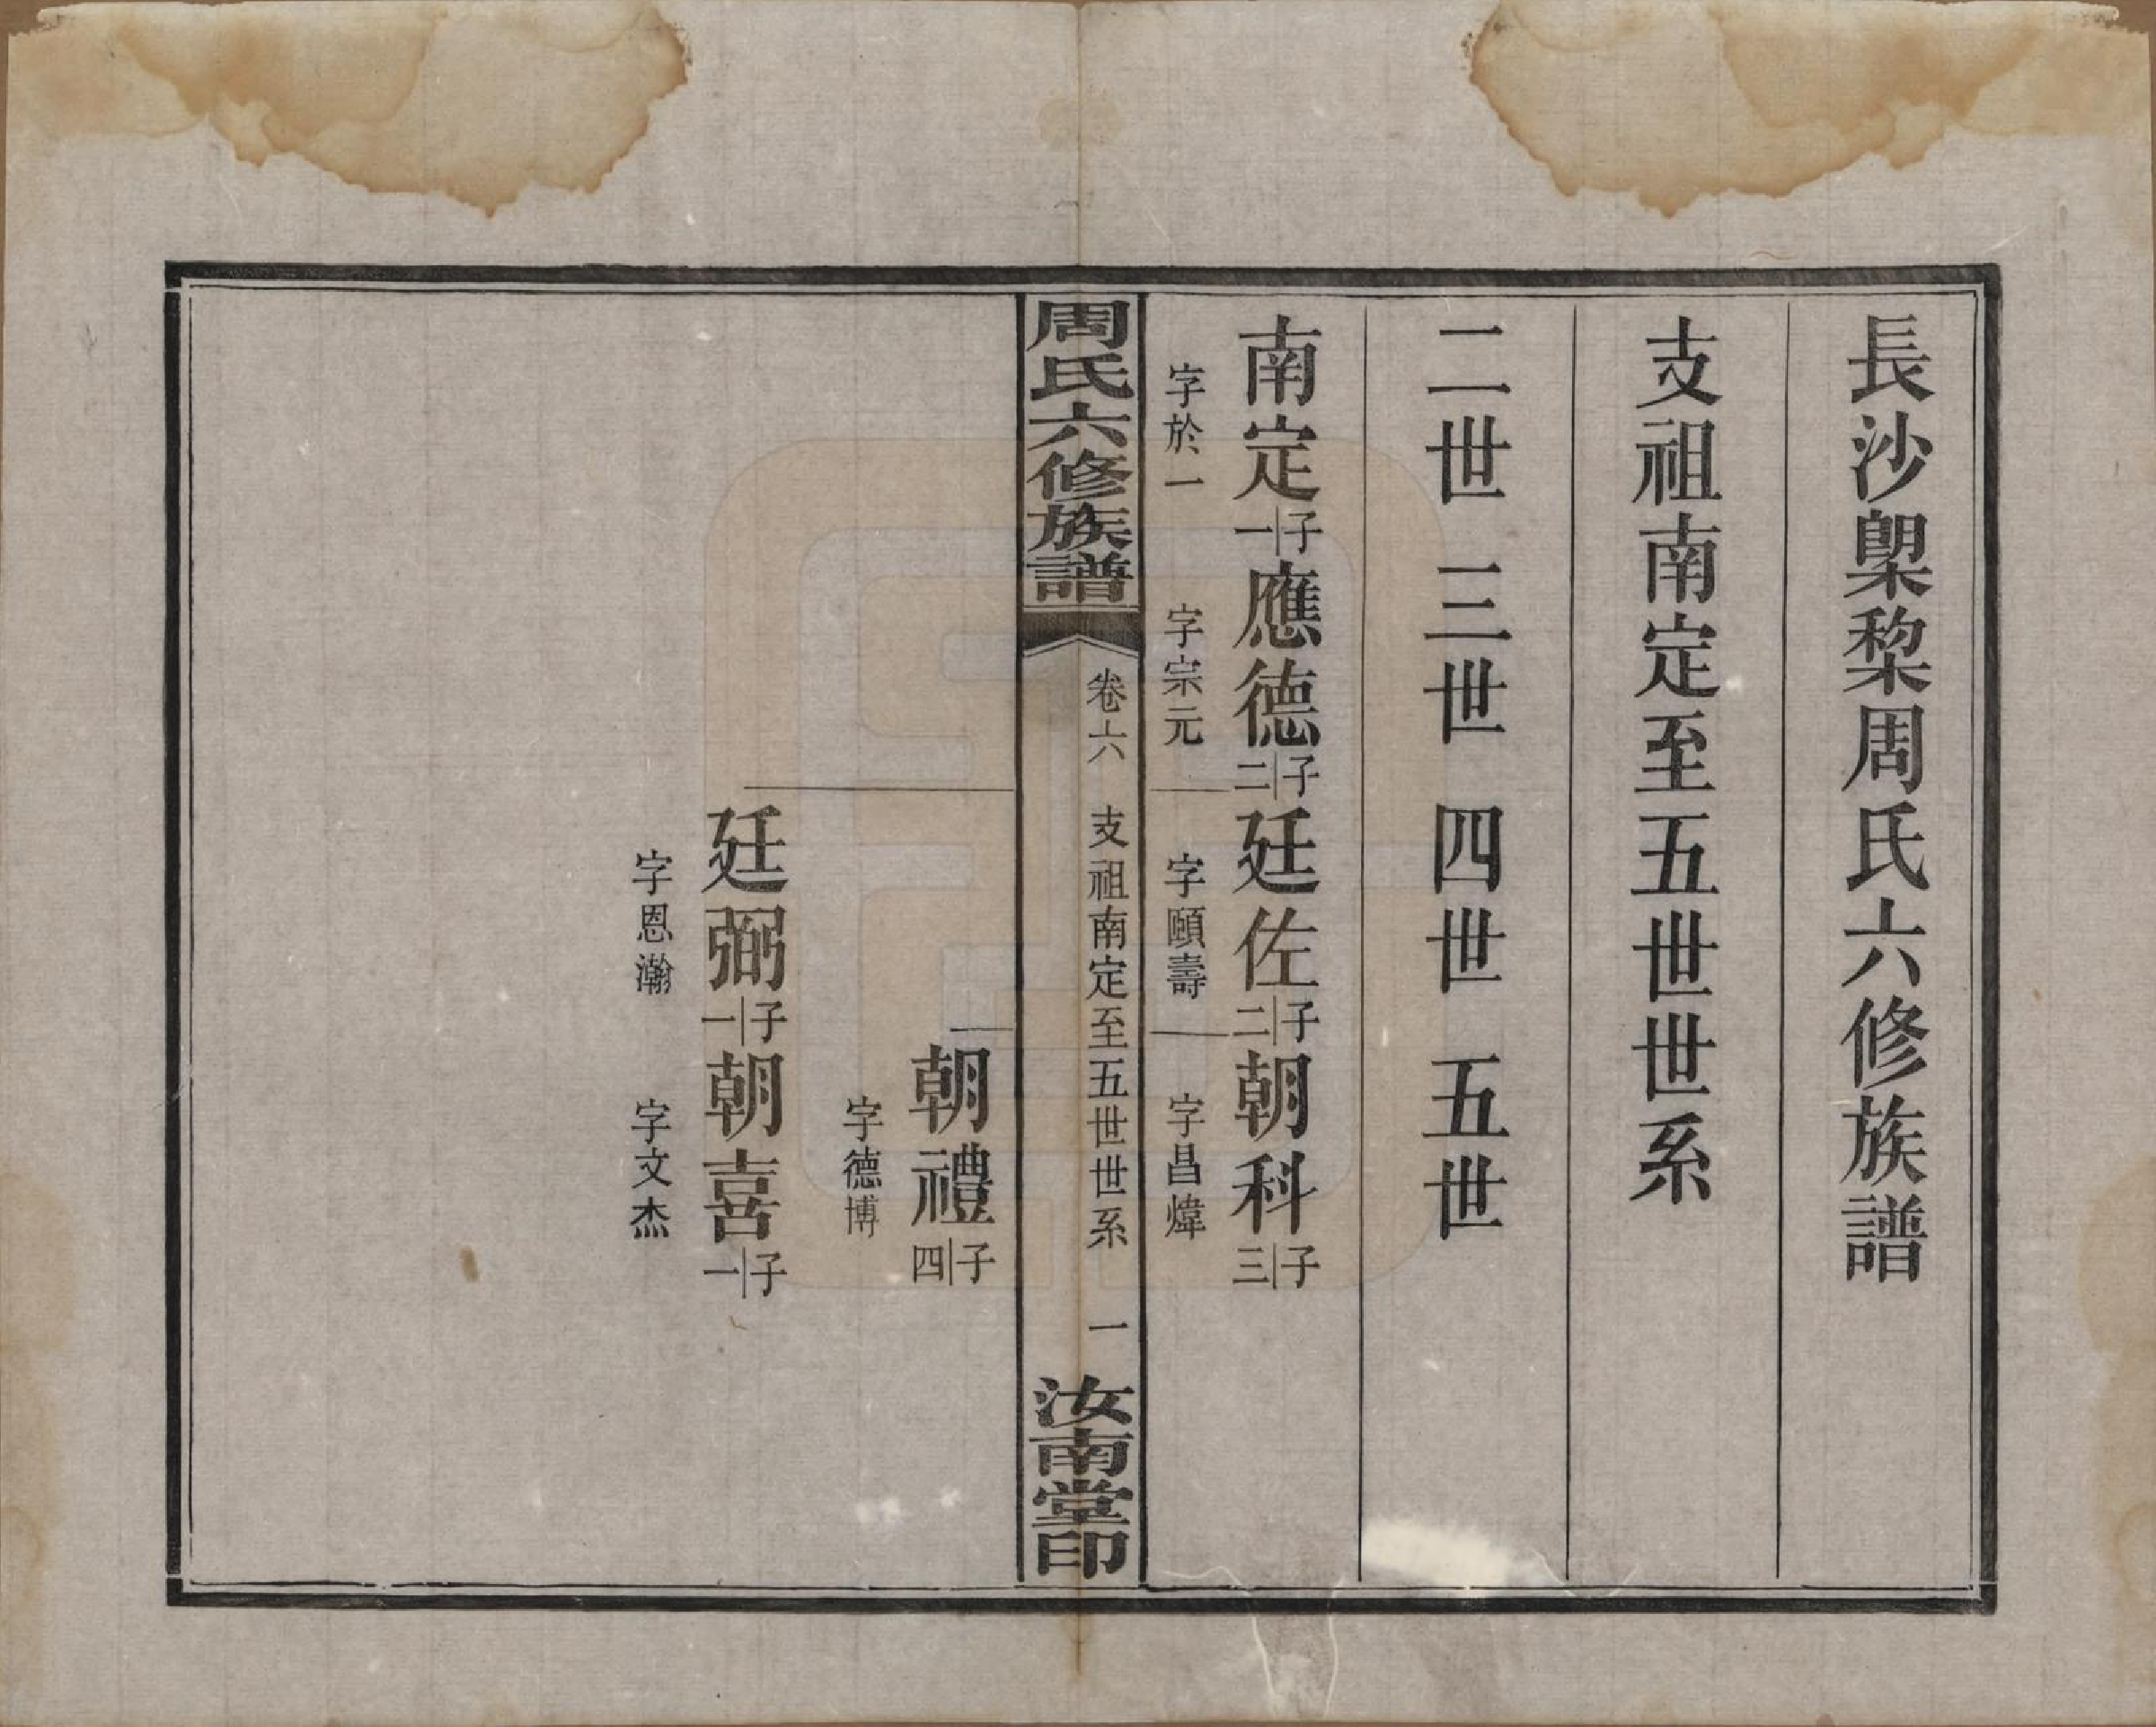 長沙㮚棃周氏六修族譜
支祖南定至五世世系
二世 三世 四世 五世
南定一子應德二子廷佐二子朝科三子
字於一 字宗元 字頤壽 字昌煒
周氏六修族譜 卷六 支祖南定至五世世系 一 汝南堂印
朝禮四子
字德博
廷弼一子朝喜一子
字恩瀚 字文杰